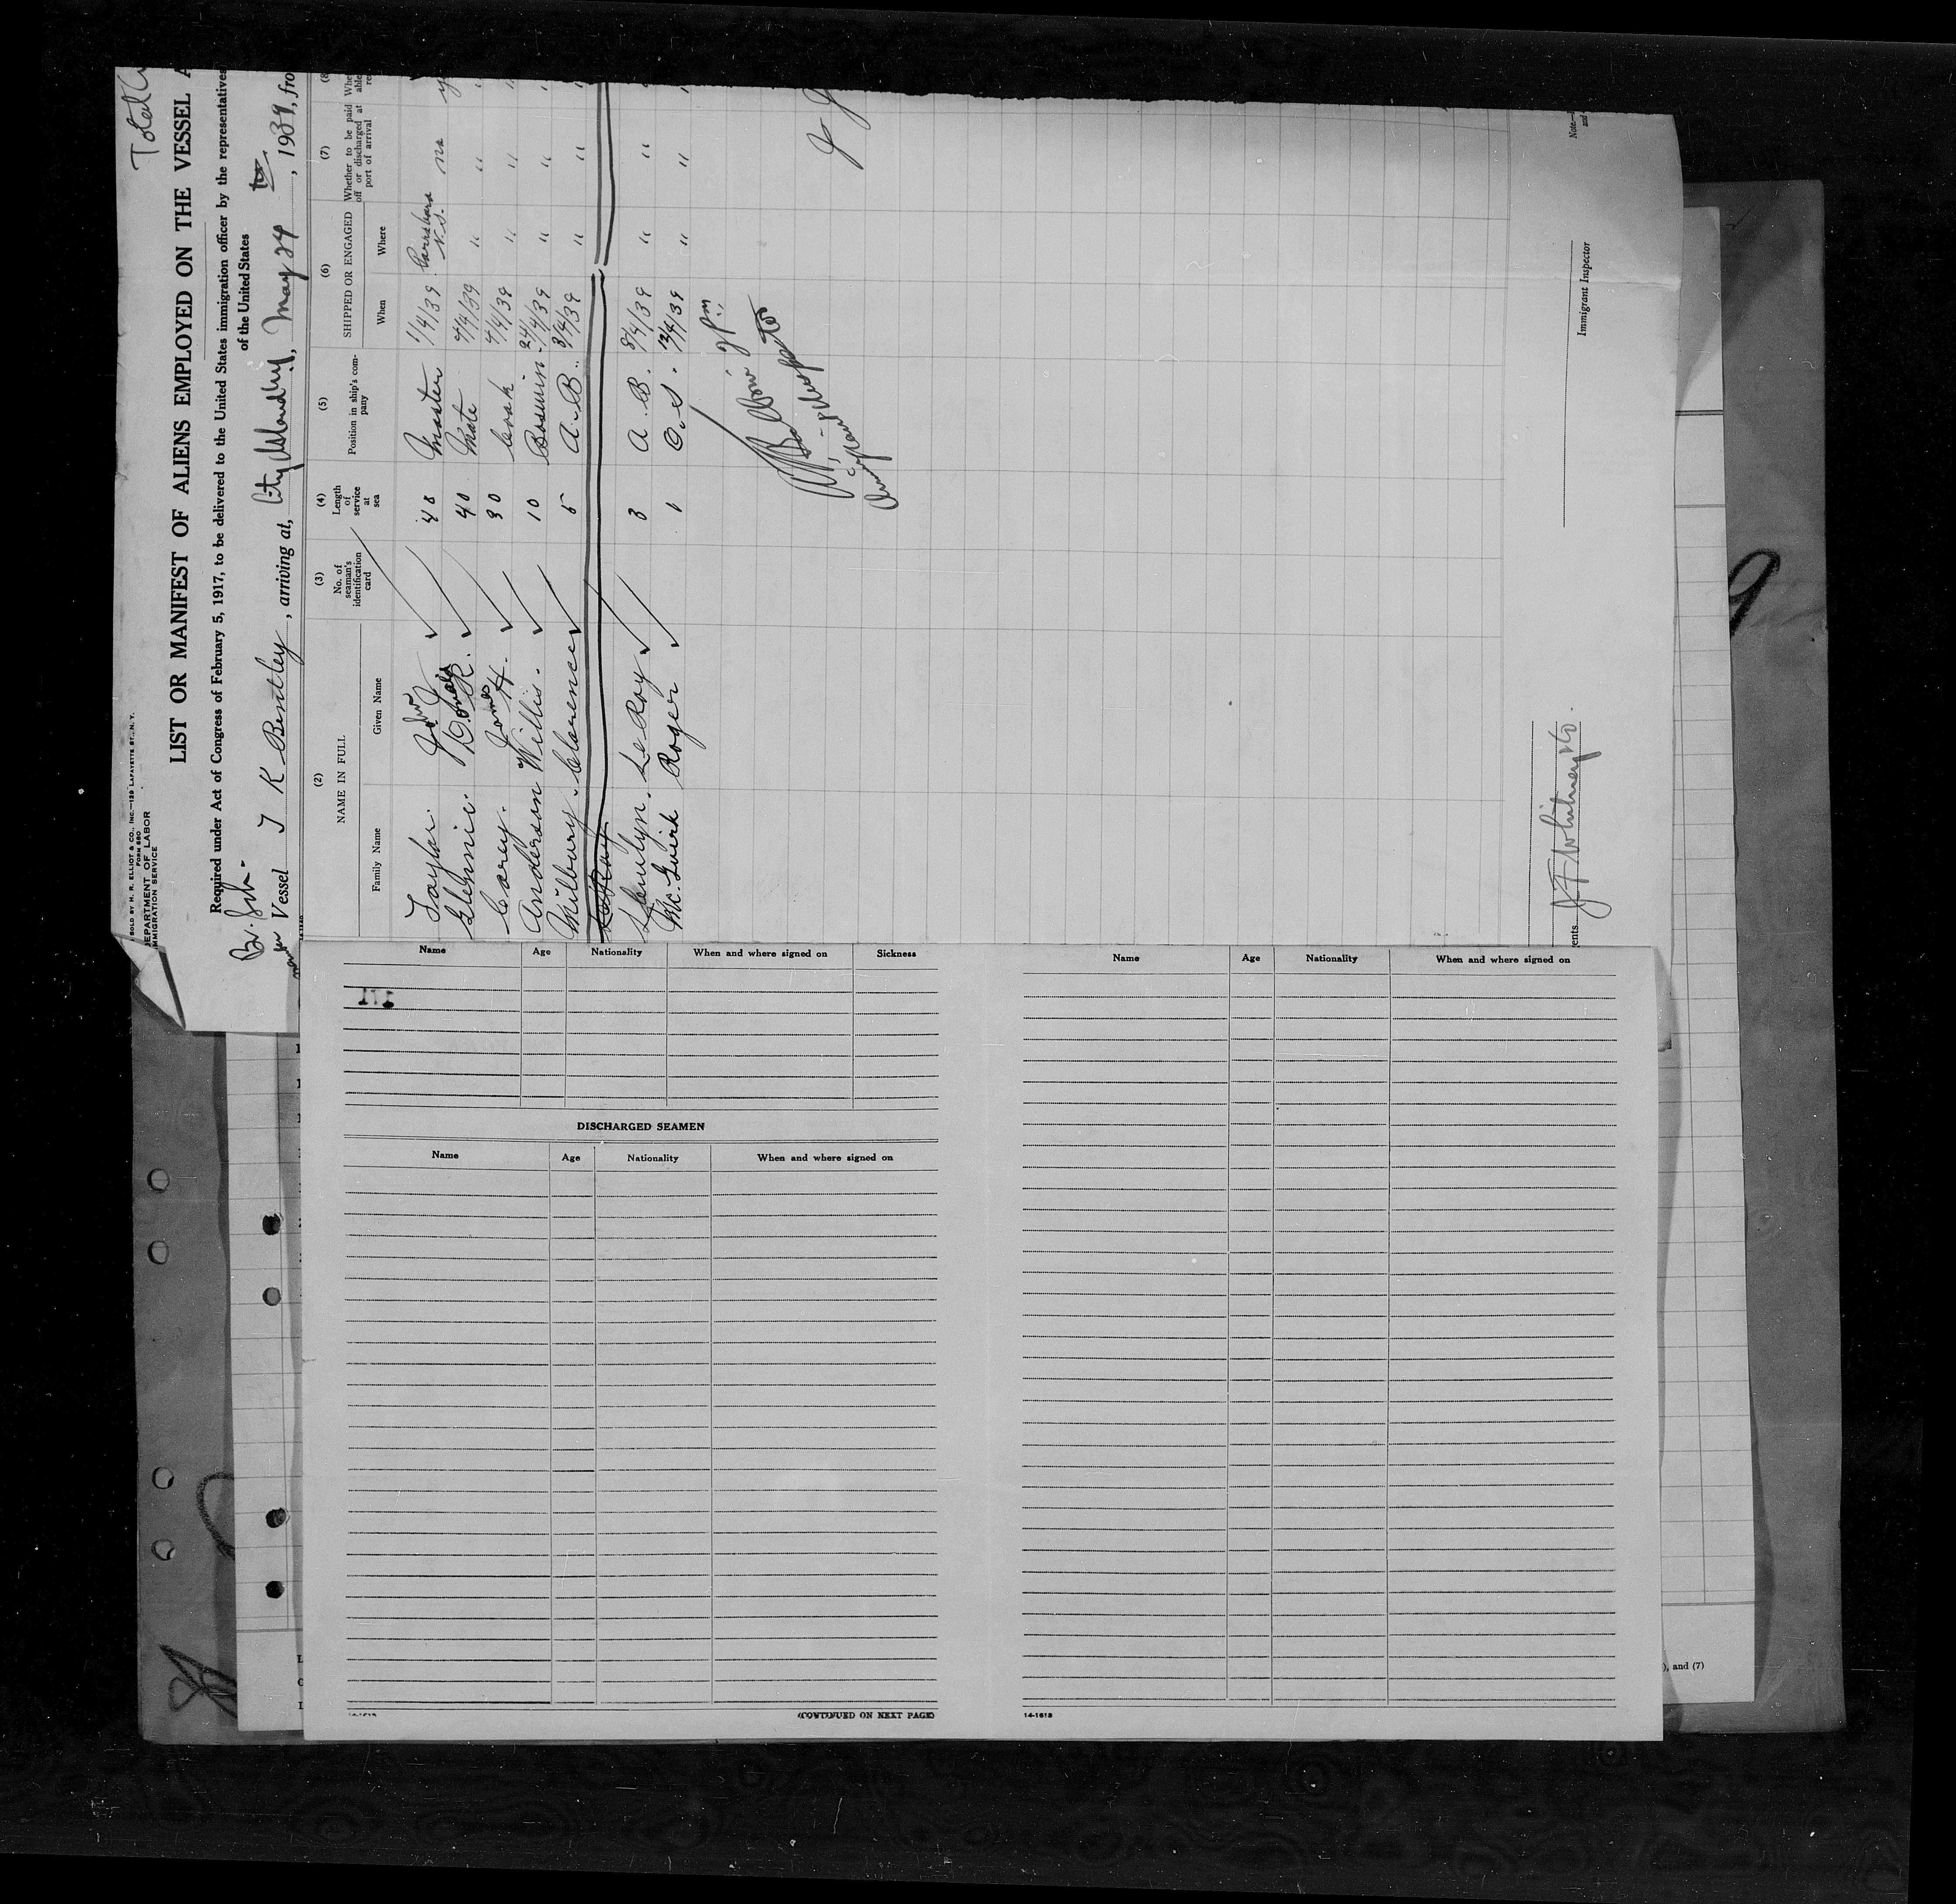 SOLD BY H. R. ELLIOT & CO., INC.—129 LAFAYETTE ST., N. Y.
FORM 680
DEPARTMENT OF LABOR
IMMIGRATION SERVICE
Total
LIST OR MANIFEST OF ALIENS EMPLOYED ON THE VESSEL A
Required under Act of Congress of February 5, 1917, to be delivered to the United States immigration officer by the representatives
of the United States
Br. Sch.
Vessel T K Bentley, arriving at, May 24, 1939, fro
(2) (3) (4) (5) (6) (7) (8
NAME IN FULL
Family Name Given Name
No. of seaman's identification card
Length of service at sea
Position in ship's company
SHIPPED OR ENGAGED
When Where
Whether to be paid off or discharged at port of arrival
Taylor. John 48 Master 1/4/39 Parrsboro N.S. no
Glennie. Donald R. 40 Mate 4/4/39 " "
Corey. James H. 30 Cook 4/4/39 " "
Anderson Willis. 10 Boswin. 24/4/39 " "
Milbury. Clarence 5 A.B. 8/4/39 " "
LeRoy
Llewlyn. LeRoy 3 A.B. 8/4/39 " "
Mc.Guirk Roger 1 O.S. 12/4/39 " "
Immigrant Inspector
Note.—
and
ents.
Name Age Nationality When and where signed on Sickness
DISCHARGED SEAMEN
Name Age Nationality When and where signed on
(CONTINUED ON NEXT PAGE)
Name Age Nationality When and where signed on
14-1613
), and (7)